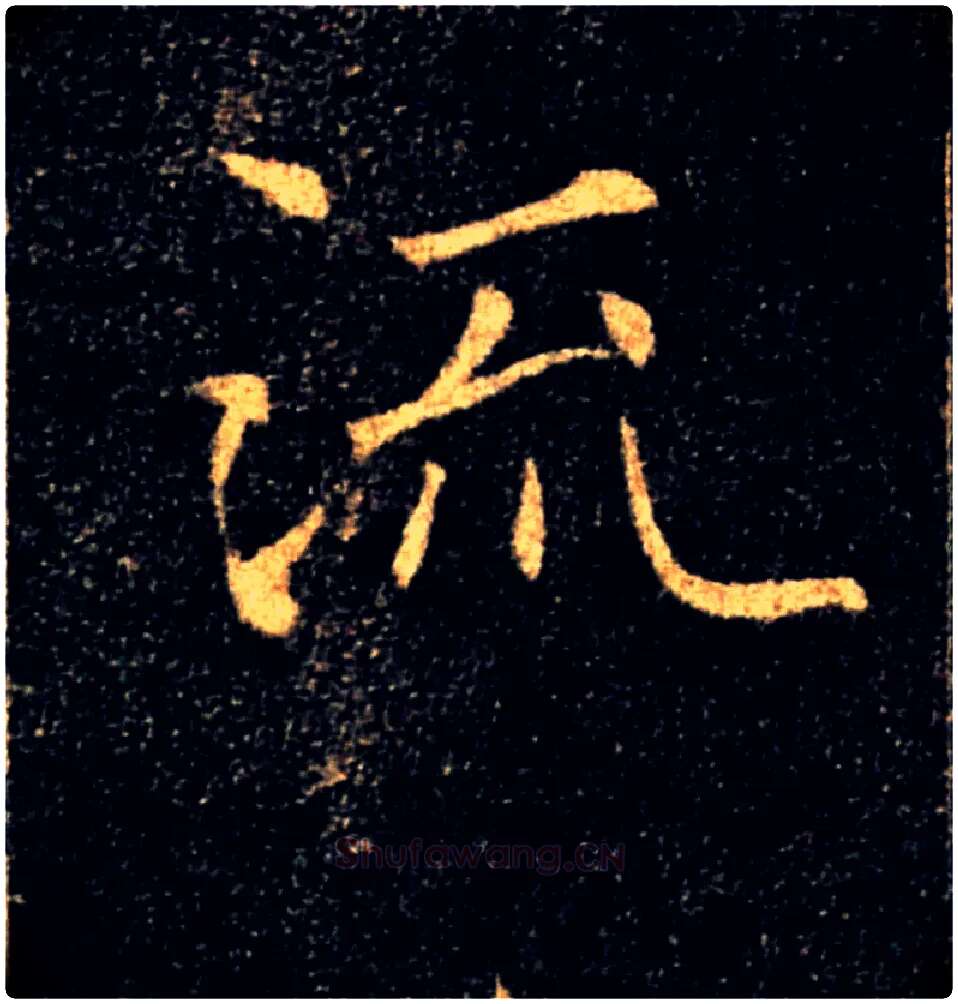 流
Shufawang.CN